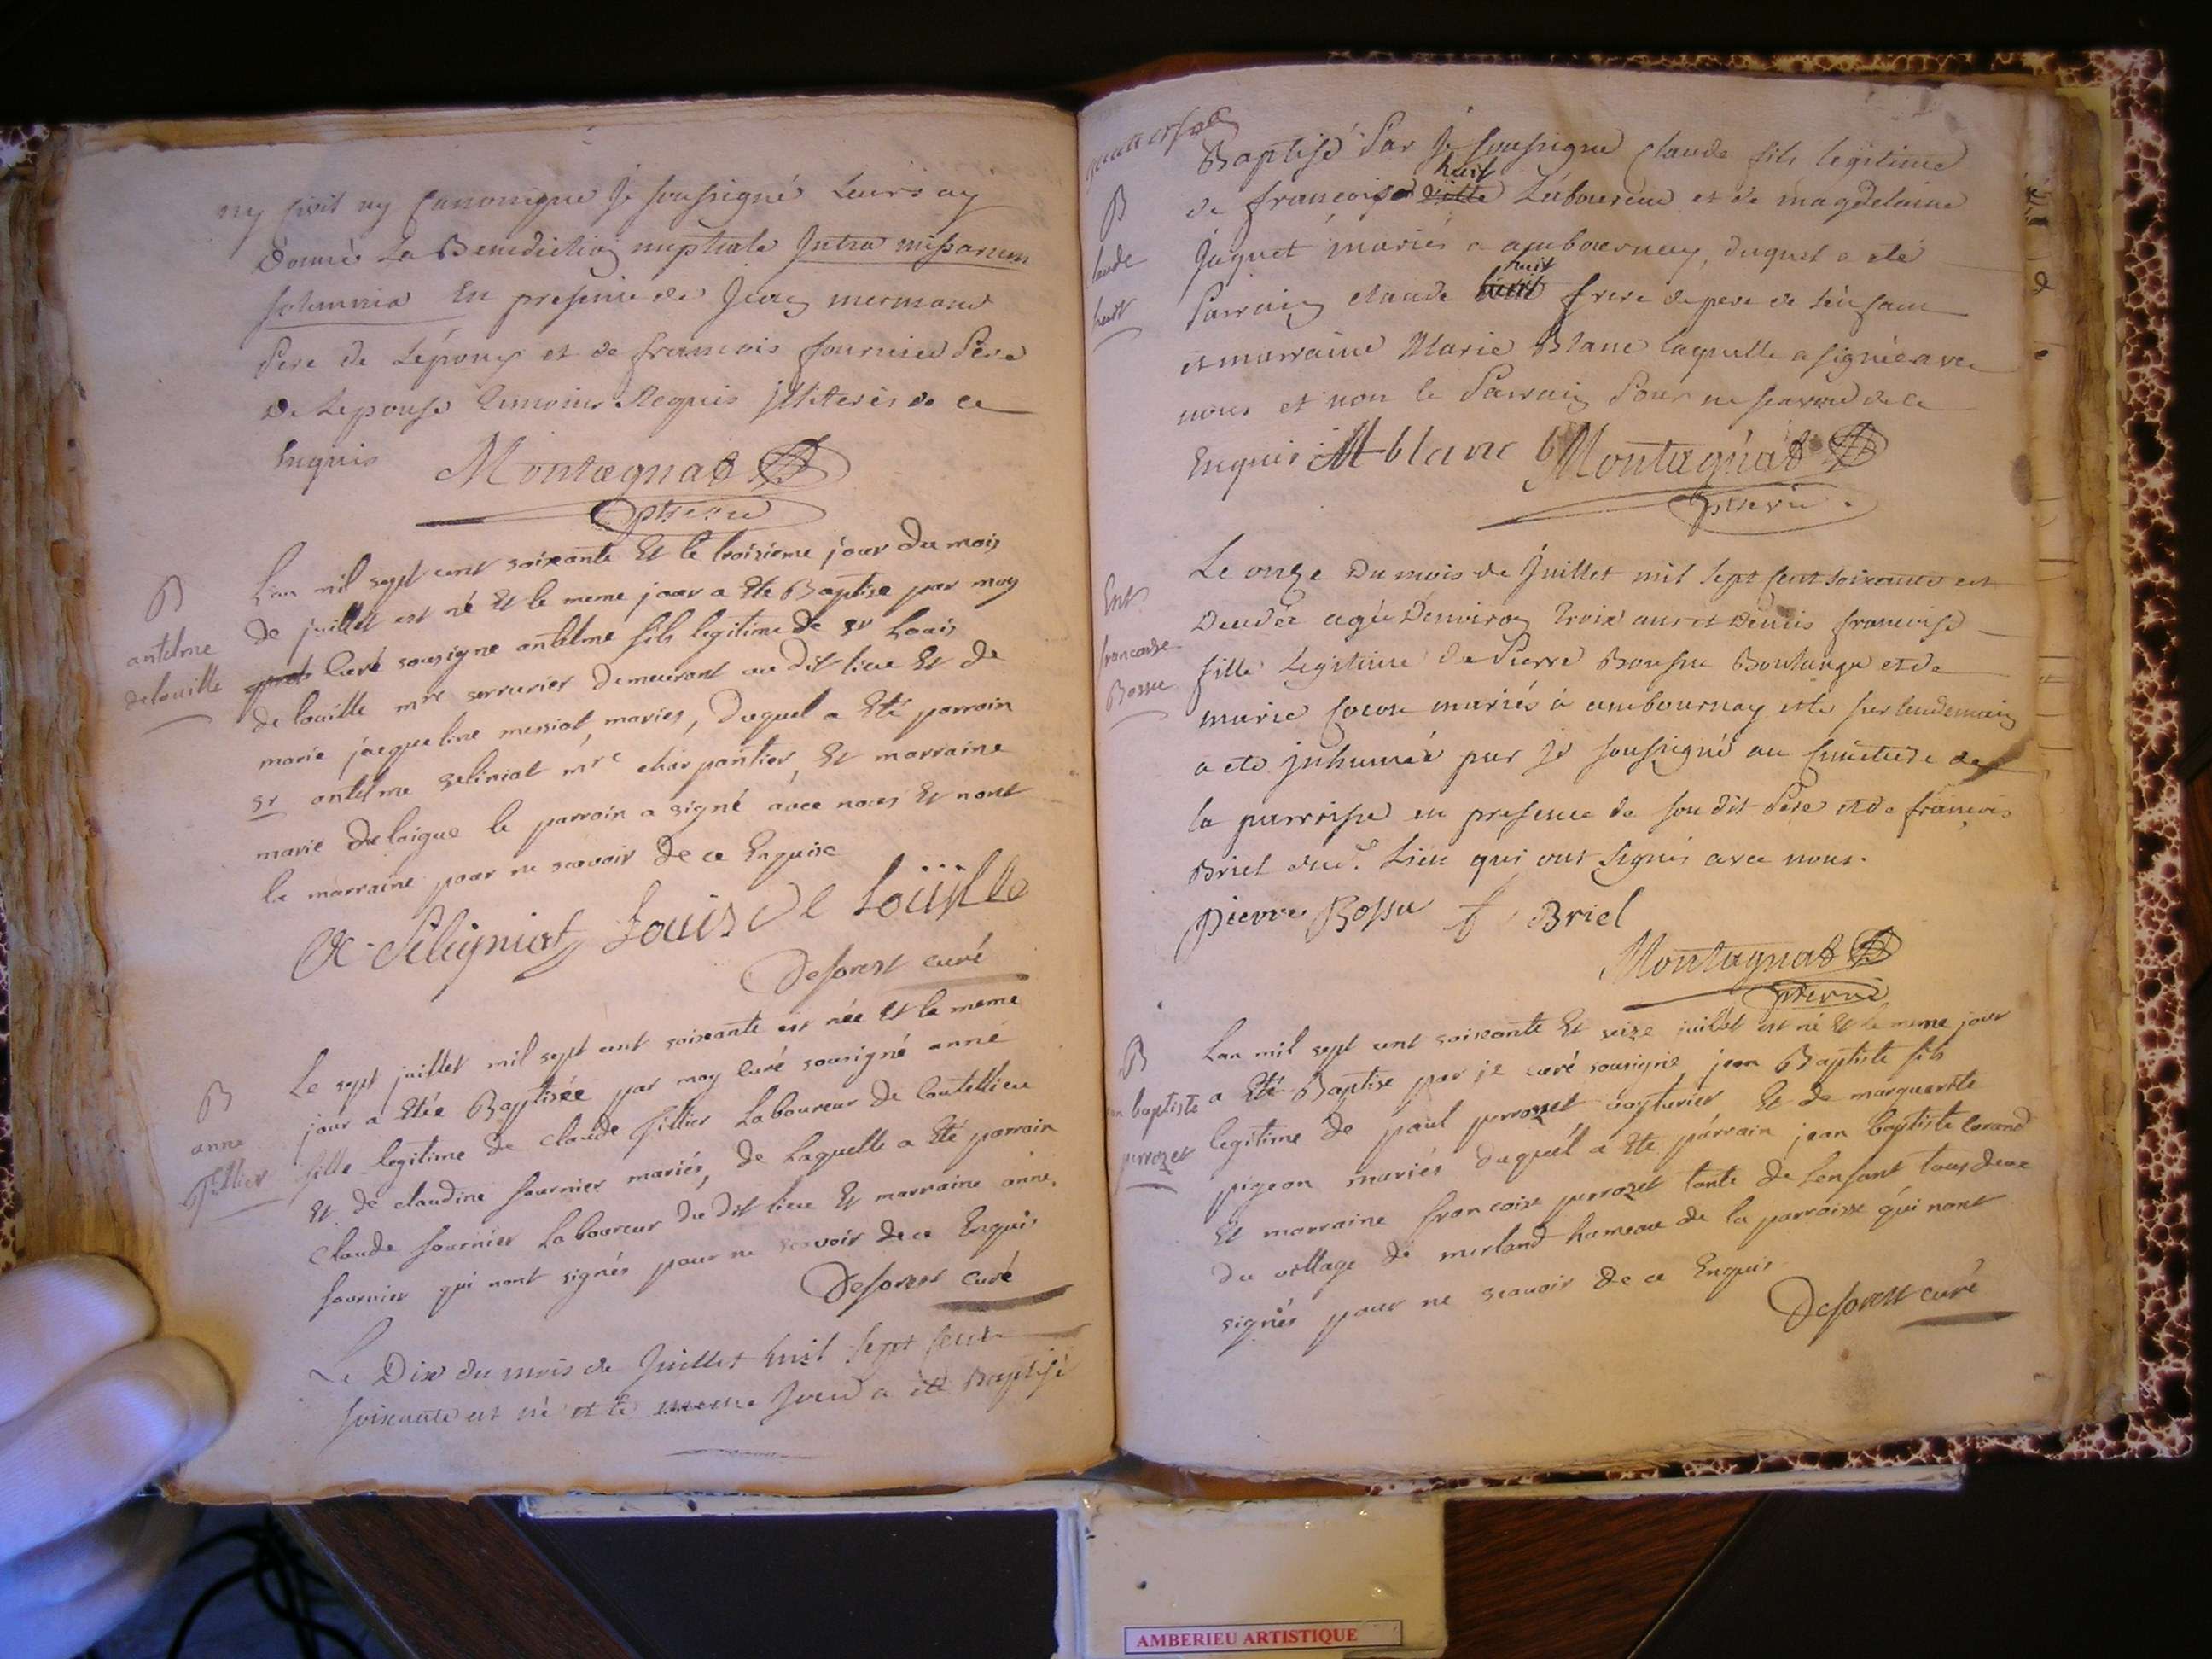 ny Civil ny Canonique je soussigné Leurs ay
donné La Benediction nuptiale Intra missarum
solemnia En presence de Jean mermand
Pere de L'époux et de francois fournier Pere
de Lepouse temoins Requis illiterés de ce
Enquis Montagnat
ptre vic
B
antelme
delouille
Lan mil sept cent soixante Et le troisieme jour du mois
de juillet est né Et le meme jour a Eté Baptise par moy
Curé sousigne antelme fils legitime de sr Louis
de louille mre serrurier demeurant au dit lieu Et de
marie jacqueline messiat, mariés, duquel a Eté parrain
sr antelme seliniat mre charpantier, Et marraine
marie delaigue le parrain a signé avec nous Et nont
la marraine pour ne scavoir de ce Enquise
A. Seligniat Louis De Loüille
Deforest curé
B
anne
fillier
Le sept juillet mil sept cent soixante est née Et le meme
jour a Etée Baptisée par moy Curé sousigné anne
fille legitime de claude fillier Laboureur de Coutellieu
Et de claudine fournier mariés, de Laquelle a Eté parrain
Claude fournier Laboureur du dit lieu Et marraine anne
fournier qui nont signés pour ne scavoir de ce Enquis
Deforest Curé
Le Dix du mois de Juillet mil sept Cent
soixante est né et le meme Jour a été Baptisé
B
laude
huit
Baptisé Par Je soussigné Claude fils legitime
huit
de francois Laboureur et de magdelaine
Jaquet mariés a ambournay, duquel a eté
huit
Parrain claude frere de pere de L'enfant
et marraine Marie Blanc laquelle a signée avec
nous et non le Parrain Pour ne scavoir de ce
Enquis M blanc Montagnat
ptre vic
Ent
francoise
Bossu
Le onze Du mois de Juillet mil sept Cent soixante est
Decedée agée Denviron Trois ans et Demis francoise
fille Legitime de Pierre Bossu Boulange et de
marie mariés à ambournay et le sur lendemain
a eté inhumée par je soussigné au Cimetiere de
la parroisse en presence de son dit Pere et de francois
Briel dud. Lieu qui ont signés avec nous.
pierre Bossu f Briel
Montagnat
ptre vic
B
an baptiste
perrozet
Lan mil sept cent soixante Et seize juillet est né Et le meme jour
a Eté Baptise par je curé sousigné, jean Baptiste fils
legitime de paul perrozet voyturier Et de marguerite
pigeon mariés duquel a Eté parrain jean baptiste
Et marraine francoise perrozet tante de Lenfant tous deux
du village de merland hameau de la parroisse qui nont
signés pour ne scavoir de ce Enquis
Deforest curé
AMBERIEU ARTISTIQUE